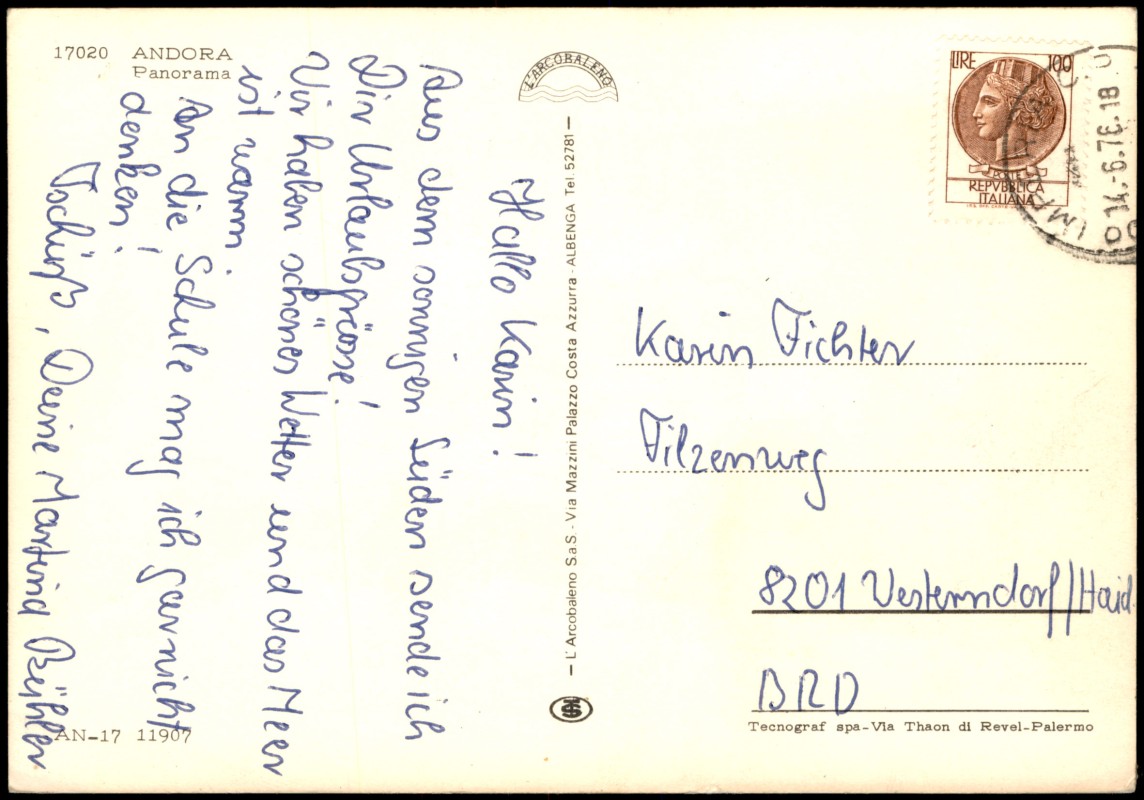 17020 ANDORA
Panorama
L'ARCOBALENO
Hallo Karin!
Aus dem sonnigen Süden sende ich
Dir Urlaubsgrüsse!
Wir haben schönes Wetter und das Meer
ist warm.
An die Schule mag ich garnicht
denken!
Tschüß, Deine Martina Bühler
AN-17 11907
— L'Arcobaleno SaS - Via Mazzini Palazzo Costa Azzurra - ALBENGA Tel. 52781 —
LIRE 100
REPVBBLICA
ITALIANA
14.-6.76.18
Karin Fichter
Filzenweg
8201 Westerndorf/Haid
BRD
Tecnograf spa-Via Thaon di Revel-Palermo